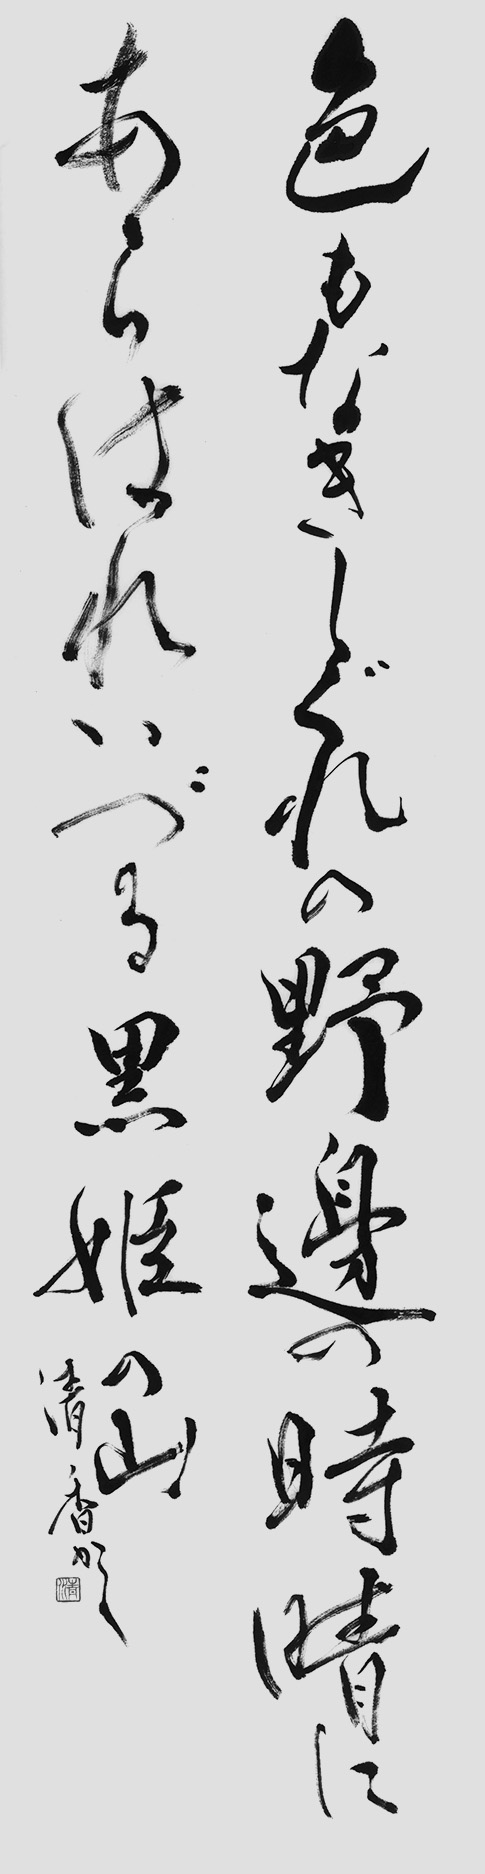 色もなきしぐれの野邊の時晴に
あらはれいづる黒姫の山
清香かく
清